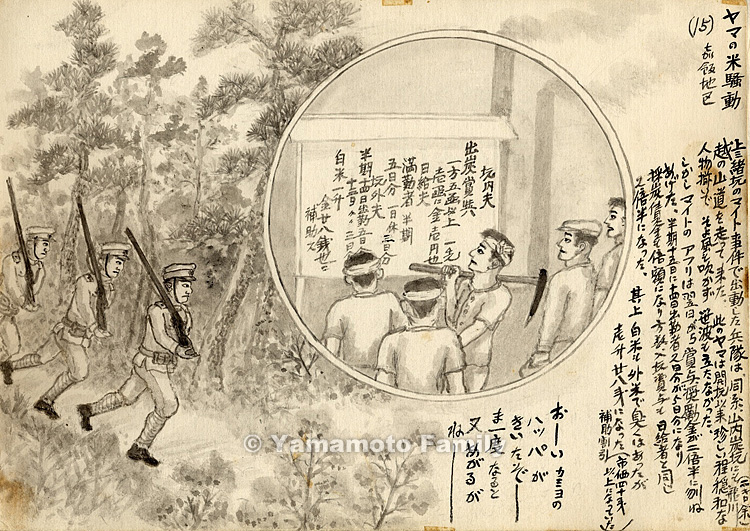 ヤマの米騒動
(15) 嘉飯地区
上三緒坑のマイト事件で出動した兵隊は、同系山内炭坑にも飛川
(二百余)
越の山道を走って来た。此のヤマは開坑以来珍しい程穏和な
人物揃いで、そよ風も吹かず笹波も立たなかった。
しかしマイトのアフリは翌日から賞与奨励金が二倍半にハネ
あげた。半期十五日に十四日出勤者
採炭賃金も倍額になり、方数入坑賞与も日給者と同じ
二倍半になった。其上白米は外米で臭くはあったが
壱升廿八銭になった
補助割引
坑内夫
出炭賞與
一方五函以上一名
壱函に金壱円也
日給夫
満勤者半期
五日分 一日休三日分
坑外夫
半期十四日出勤五日
白米一升
金廿八銭也
補助ス
おーいカミヨの
ハッパが
きいたぞー
ま一度なると
又あがるが
ねー
© Yamamoto Family